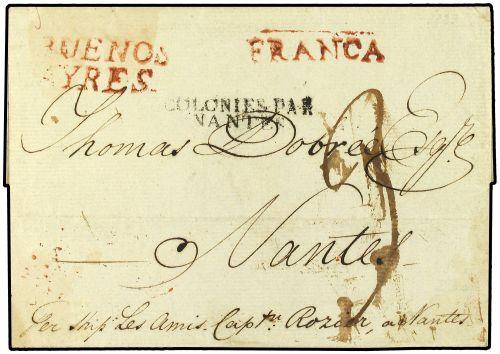 BUENOS
AYRES.
FRANCA
COLONIES PAR
NANTES
Thomas Dobrée Esqre
Nantes
Per Ship Les Amis. Captn Rozier, a Nantes